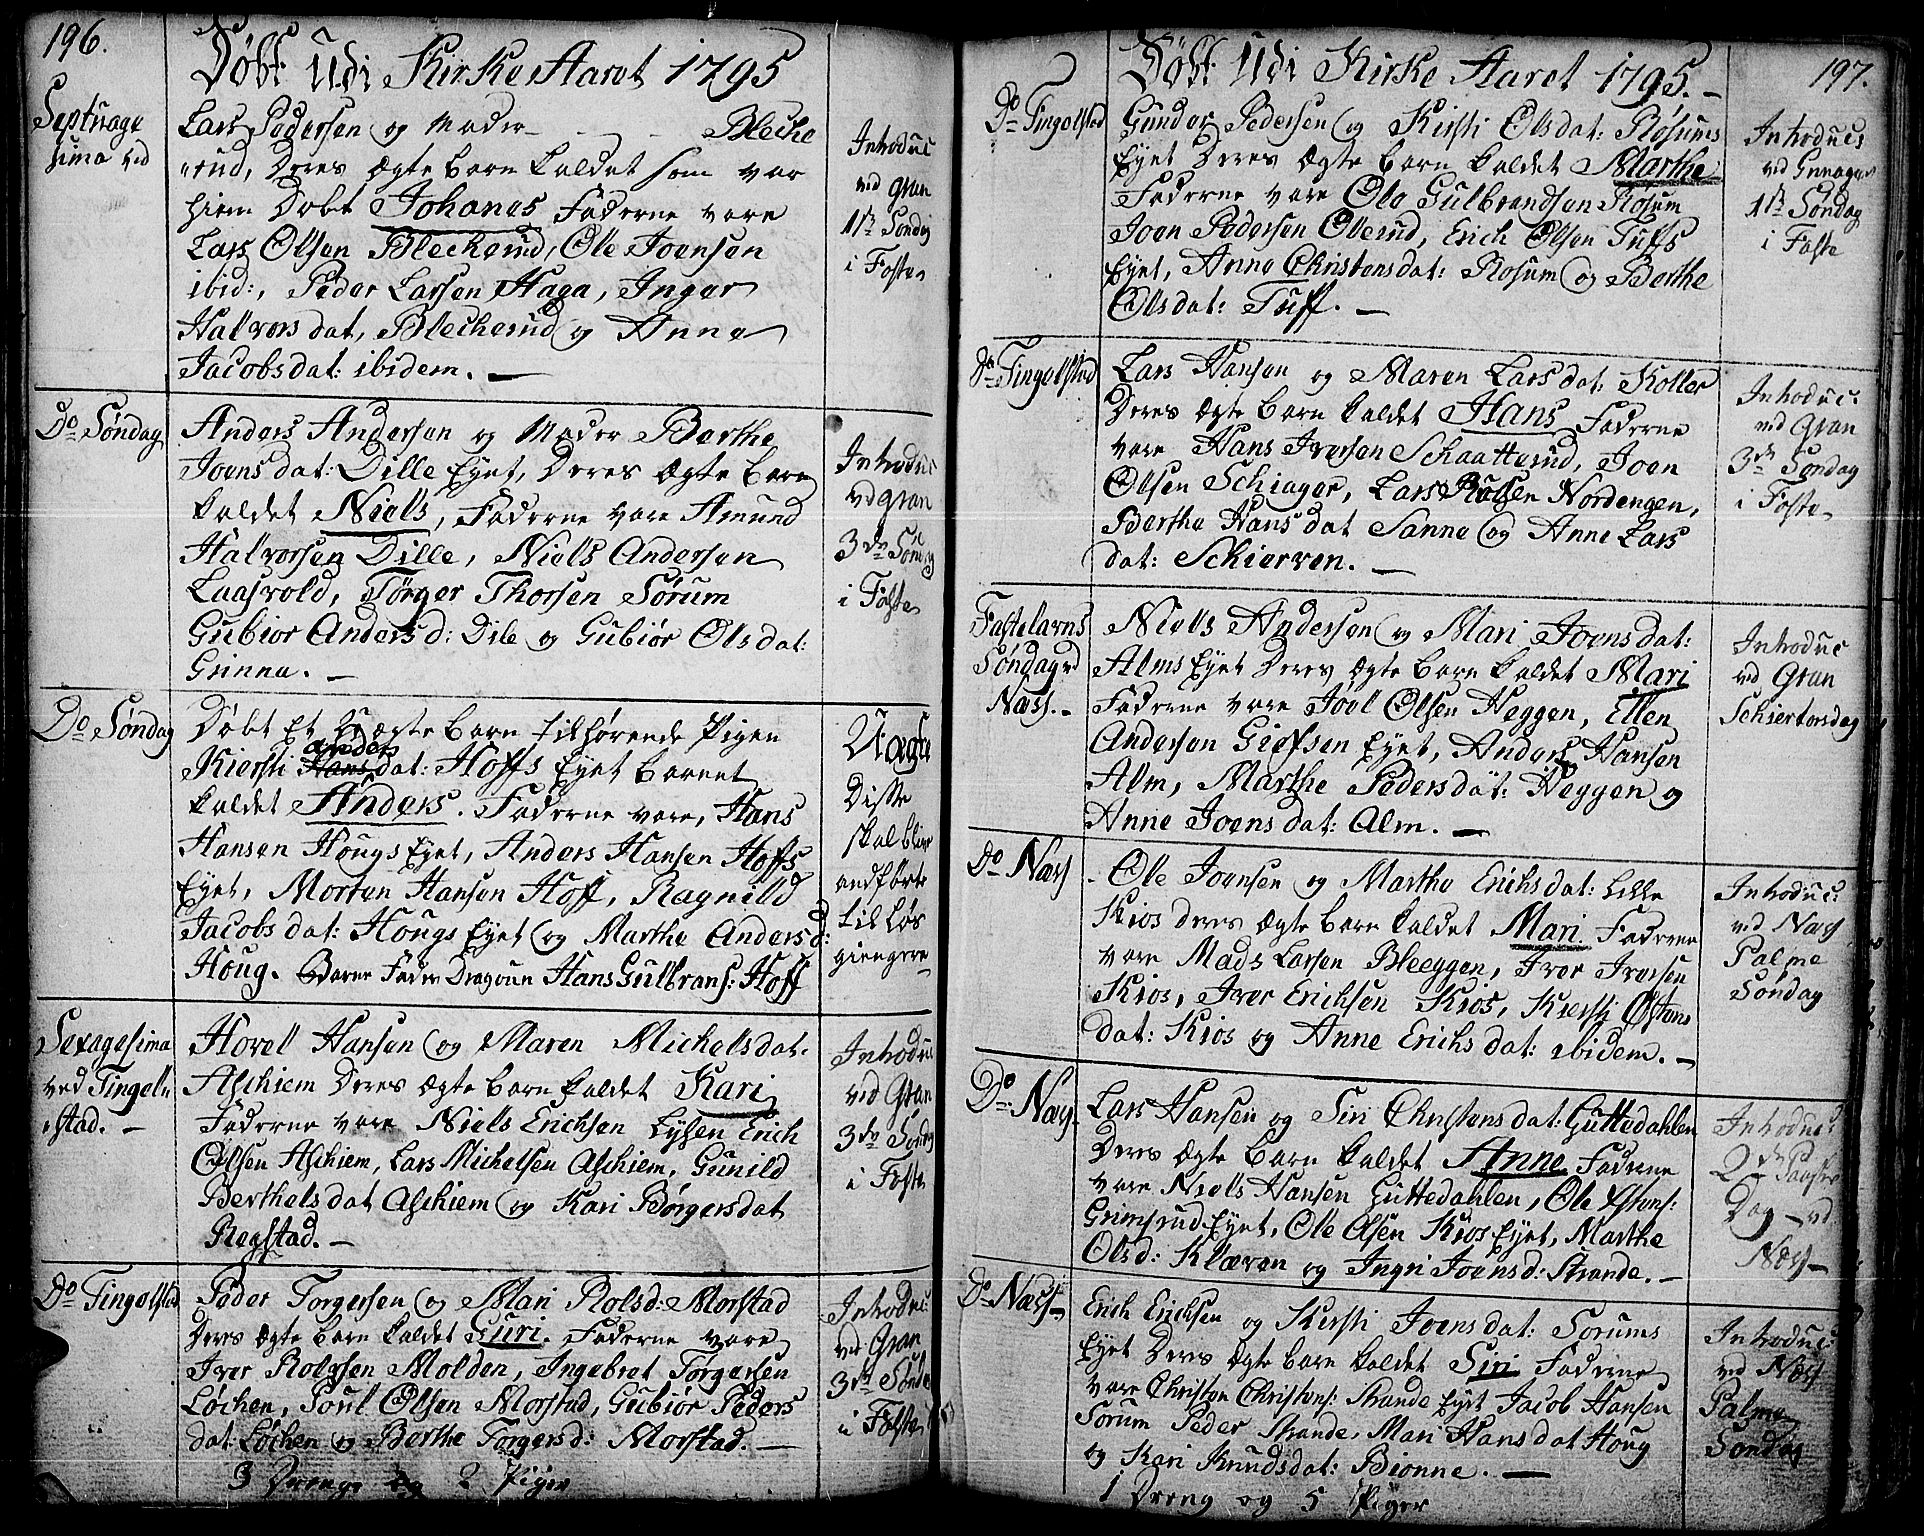 196.
Døbt Udi Kirke Aaret 1795
Septuage
sima ved
Lars Pedersen og Moder - - - Bleche
rud, Deres Ægte barn kaldet som var
hiem Døbt Johanes Faderne vare
Lars Olsen Blecherud, Ole Joensen
ibid:, Peder Larsen Haga, Inger
Halvors dat, Blecherud og Anne
Jacobs dat: ibidem. —
Introduc
ved Gran
1ste Søndag
i Faste
Do Søndag
Anders Andersen og Moder Berthe
Joens dat: Dille Eyet, Deres Ægte barn
kaldet Niels, Faderne vare Amund
Halvorsen Dille, Niels Andersen
Laasvold, Tørger Thorsen Sørum
Gubiør Anders d: Dile og Gubiør Ols dat:
Grinna. —
Introduc
ved Gran
3de Søndag
i Faste
Do Søndag
Døbt Et Uægte barn tilhørende Pigen
Kiersti Anders dat: Hoffs Eyet barnet
kaldet Anders. Faderne vare, Hans
Hansen Hougs Eyet, Anders Hansen Hoffs
Eyet, Morten Hansen Hoff, Ragnild
Jacobs dat: Hougs Eyet og Marthe Anders d:
Houg. Barne Fader Dragoun Hans Gulbrans: Hoff
Uægte
Disse
skal blive
andførte
til Løs
giengere
Sexagesima
ved Tingeln
stad. —
Hovel Hansen og Maren Michelsdat:
Aschiem Deres Ægte barn kaldet Kari
Faderne vare Niels Erichsen Lysen Erich
Olsen Aschiem, Lars Michelsen Aschiem, Gunild
Berthels dat Aschiem og Kari Børgersdat
Regstad. —
Introduc
ved Gran
3de Søndag
i Faste
Do Tingelstad
Peder Torgersen og Mari Rolsd: Morstad
Deres Ægte barn kaldet Guri. Faderne vare
Iver Rolvsen Molden, Ingebret Torgersen
Løchen, Poul Olsen Morstad, Gubiør Peders
dat: Løchen og Berthe Torgersd: Morstad. —
Introduc:
ved Gran
3de Sønda
i Faste
3 Drenge og 2 Piger
197.
Døbt Udi Kirke Aaret 1795. —
Do Tingelsted
Gunder Pedersen og Kirsti Olsdat: Røsums
Eyet Deres Ægte barn kaldet Marthe
Faderne vare Ole Gulbrandsen Rosum
Joen Pedersen Olerud, Erich Olsen Tuffs
Eyet, Anne Christensdat: Rosum og Berthe
Olsdat: Tuff. —
Introduc
ved
1ste Søndag
i Faste
Do Tingelstad
Lars Hansen og Maren Larsdat: Koller
Deres Ægte barn kaldet Hans Faderne
vare Hans Iversen Schaatterud, Joen
Olsen Schiager, Lars Nordengen,
Berthe Hans dat Sanne og Anne Lars
dat: Schierven. —
Introduc:
ved Gran
3de Søndag
i Faste
Fastelavns
Søndag ved
Næss. —
Niels Andersen og Mari Joens dat:
Alms Eyet Deres Ægte barn kaldet Mari
Faderne vare Jøvl Olsen Heggen, Ellen
Andersen Giefsen Eyet, Anders Hansen
Alm, Marthe Pedersdat: Heggen og
Anne Joens dat: Alm. —
Introduc
ved Gran
Schiertorsdag
Do Næss
Ole Joensen og Marthe Erichsdat: Lille
Kios deres Ægte barn kaldet Mari Faderne
vare Mads Larsen Bleeggen, Iver Iversen
Kios, Iver Erichsen Kios, Kiersti Østens
dat: Kios og Anne Erichs dat: ibidem. —
Introduc:
ved Næss
Palme
Søndag
Do Næss.
Lars Hansen og Siri Christens dat: Guttedahlen
Deres Ægte barn kaldet Anne Faderne
vare Niels Hansen Guttedahlen, Ole Østens:
Grimsrud Eyet, Ole Olsen Kios Eyet, Marthe
Olsd: Klæven og Ingri Joensd: Strande. —
Introduc:
2den Paaske
Dag — ved
Næss —
Do Næss
Erich Erichsen og Kiersti Joens dat: Sorums
Eyet Deres Ægte barn kaldet Siri Faderne
vare Christen Christens: Strande Eyet Jacob Hansen
Sorum Peder Strande, Mari Hans dat Houg
og Kari Knudsdat: Bionne. —
Introduc:
ved Næss
Palme
Søndag
1 Dreng og 5 Piger